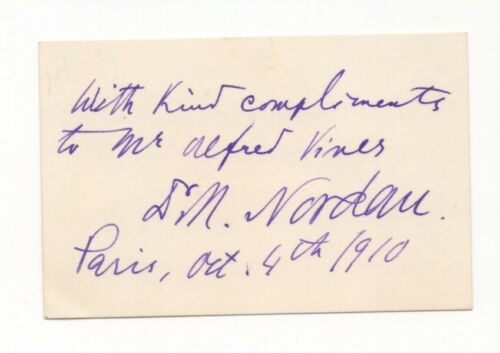 With Kind compliments
to Mr Alfred Vines
Dr M. Nordau.
Paris, Oct. 4th 1910